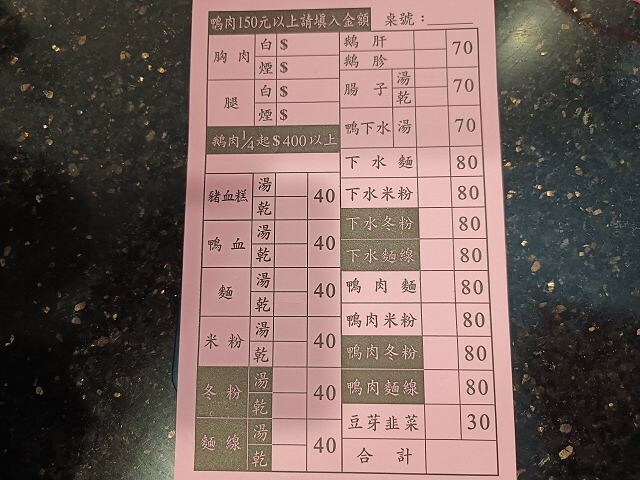 鴨肉150元以上請填入金額 桌號：
胸肉 白 $
煙 $
腿 白 $
煙 $
鵝肉1/4起$400以上
豬血糕 湯 乾 40
鴨血 湯 乾 40
麵 湯 乾 40
米粉 湯 乾 40
冬粉 湯 乾 40
麵線 湯 乾 40
鵝肝
鵝胗
70
腸子 湯 乾 70
鴨下水 湯 70
下水麵 80
下水米粉 80
下水冬粉 80
下水麵線 80
鴨肉麵 80
鴨肉米粉 80
鴨肉冬粉 80
鴨肉麵線 80
豆芽韭菜 30
合計